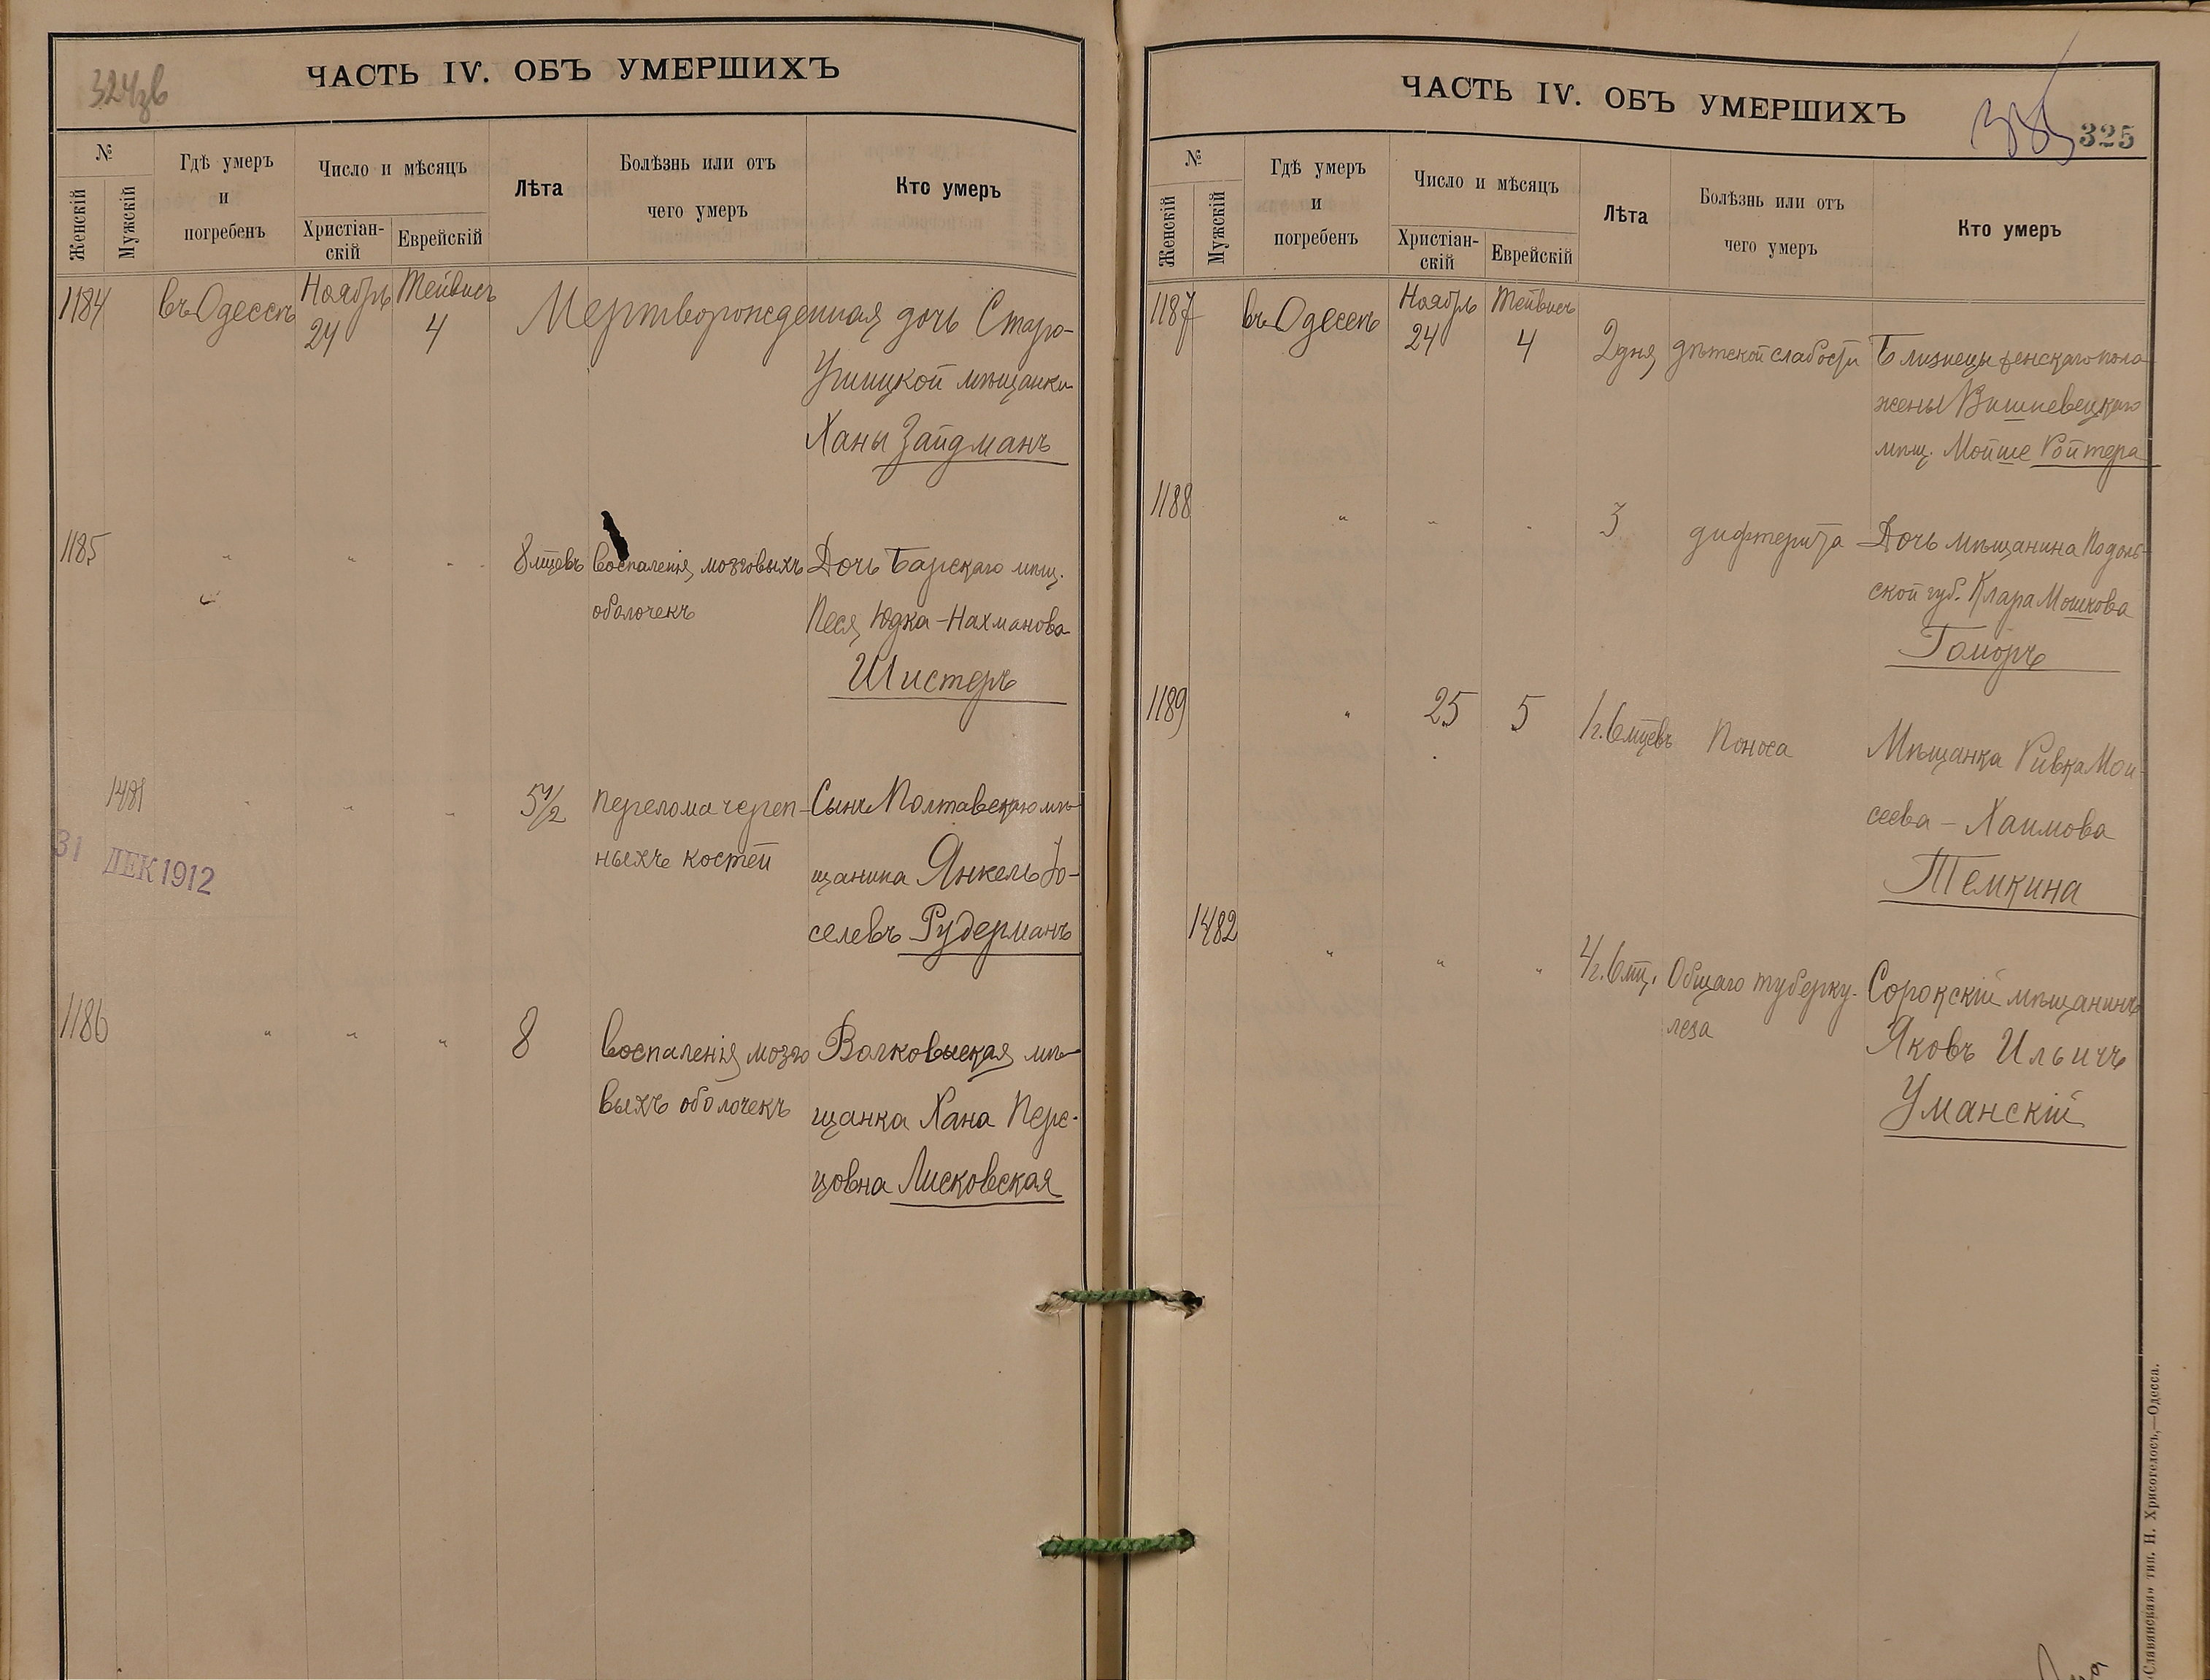 324зв
ЧАСТЬ IV. ОБЪ УМЕРШИХЪ
№
Женскій
Мужскій
Гдѣ умеръ
и
погребенъ
Число и мѣсяцъ
Христіан-
скій
Еврейскій
Лѣта
Болѣзнь или отъ
чего умеръ
Кто умеръ
1184 въ Одессѣ Ноябрь Тейвисъ Мертворожденная дочь Старо-
24 4
Ушицкой мѣщанки
Ханы Зайдманъ
1185 " " " 8 мцевъ воспаленія мозговыхъ Дочь Барскаго мѣщ.
оболочекъ Песя Юдка-Нахманова
Шистеръ
1481 " " " 5 1/2 перелома череп- Сынъ Полтавскаго мѣ-
ныхъ костей щанина Янкель Іо-
селевъ Рудерманъ
31 ДЕК 1912
1186 " " " 8 воспаленія мозго Волковыская мѣ-
выхъ оболочекъ щанка Хана Пере-
цовна Лисковская
ЧАСТЬ IV. ОБЪ УМЕРШИХЪ
325
№
Женскій
Мужскій
Гдѣ умеръ
и
погребенъ
Число и мѣсяцъ
Христіан-
скій
Еврейскій
Лѣта
Болѣзнь или отъ
чего умеръ
Кто умеръ
1187 въ Одессѣ Ноябрь Тейвисъ
24 4 2 дня дѣтской слабости Близнецы женскаго пола
жены Вишневецкаго
мѣщ. Мойше Ройтера
1188 " " " 3 дифтерита Дочь мѣщанина Подоль-
ской губ. Клара Мошкова
Гоморъ
1189 " 25 5 1 г. 6 мцевъ Поноса Мѣщанка Ривка Мои-
сеева - Хаимова
Темкина
1482 " " " 4 г. 6 мц. Общаго туберку- Сорокскій мѣщанинъ
леза Яковъ Ильичъ
Уманскій
«Славянская» тип. Н. Хрисогелосъ,—Одесса.